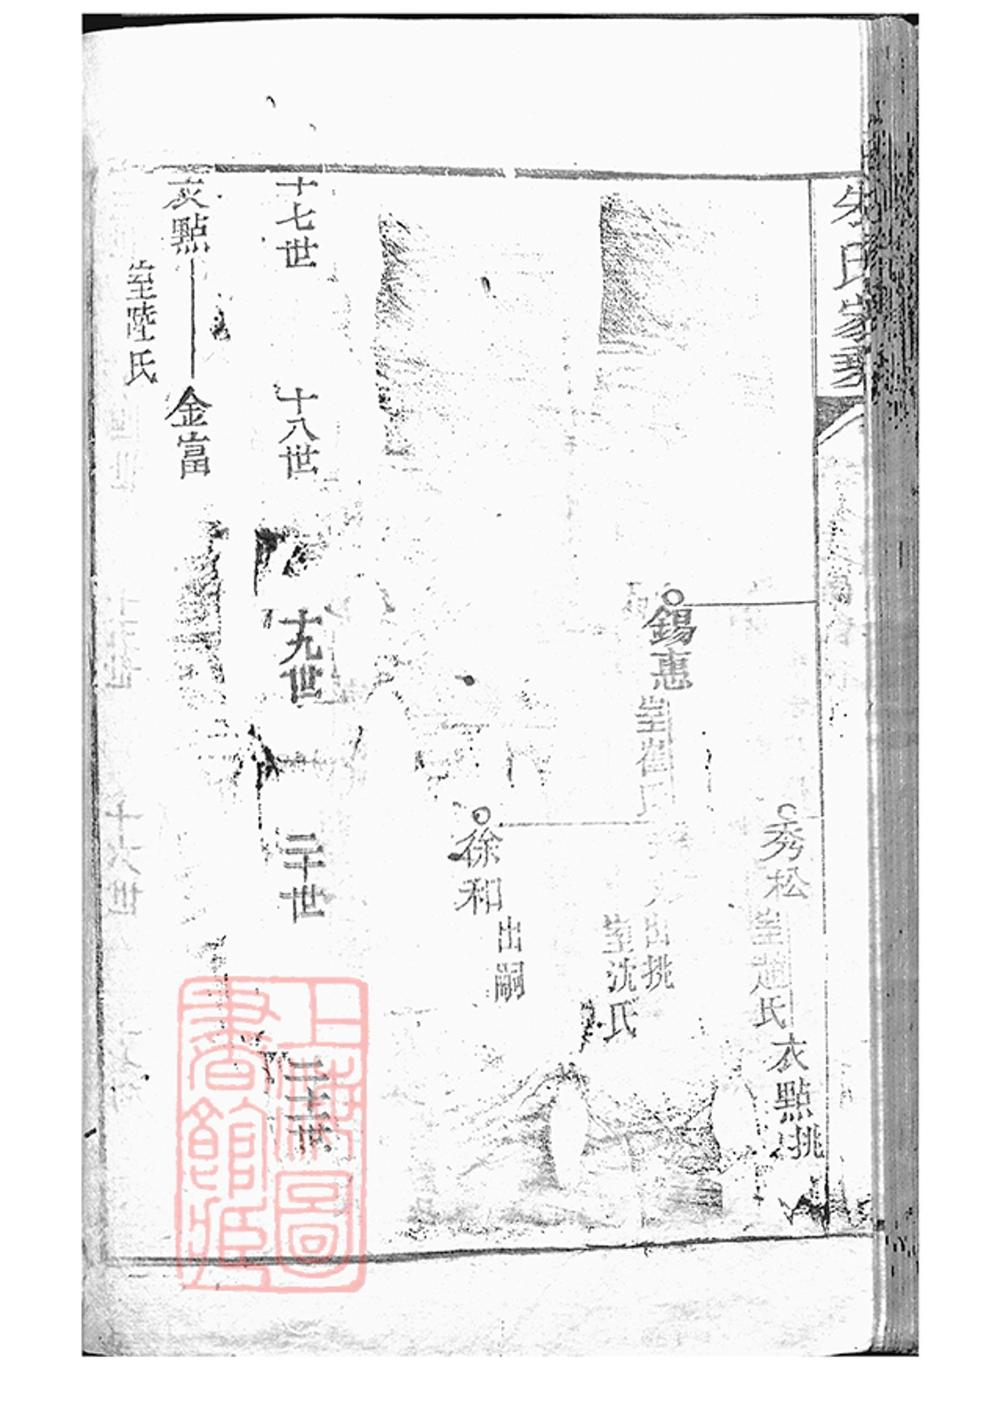 朱氏家乘
秀松
室趙氏
衣點
挑
錫惠
室
氏
出挑
室沈氏
徐和
出嗣
十七世
十八世
十九世
二十世
二十一世
衣點
室陸氏
金富
上海圖書館藏